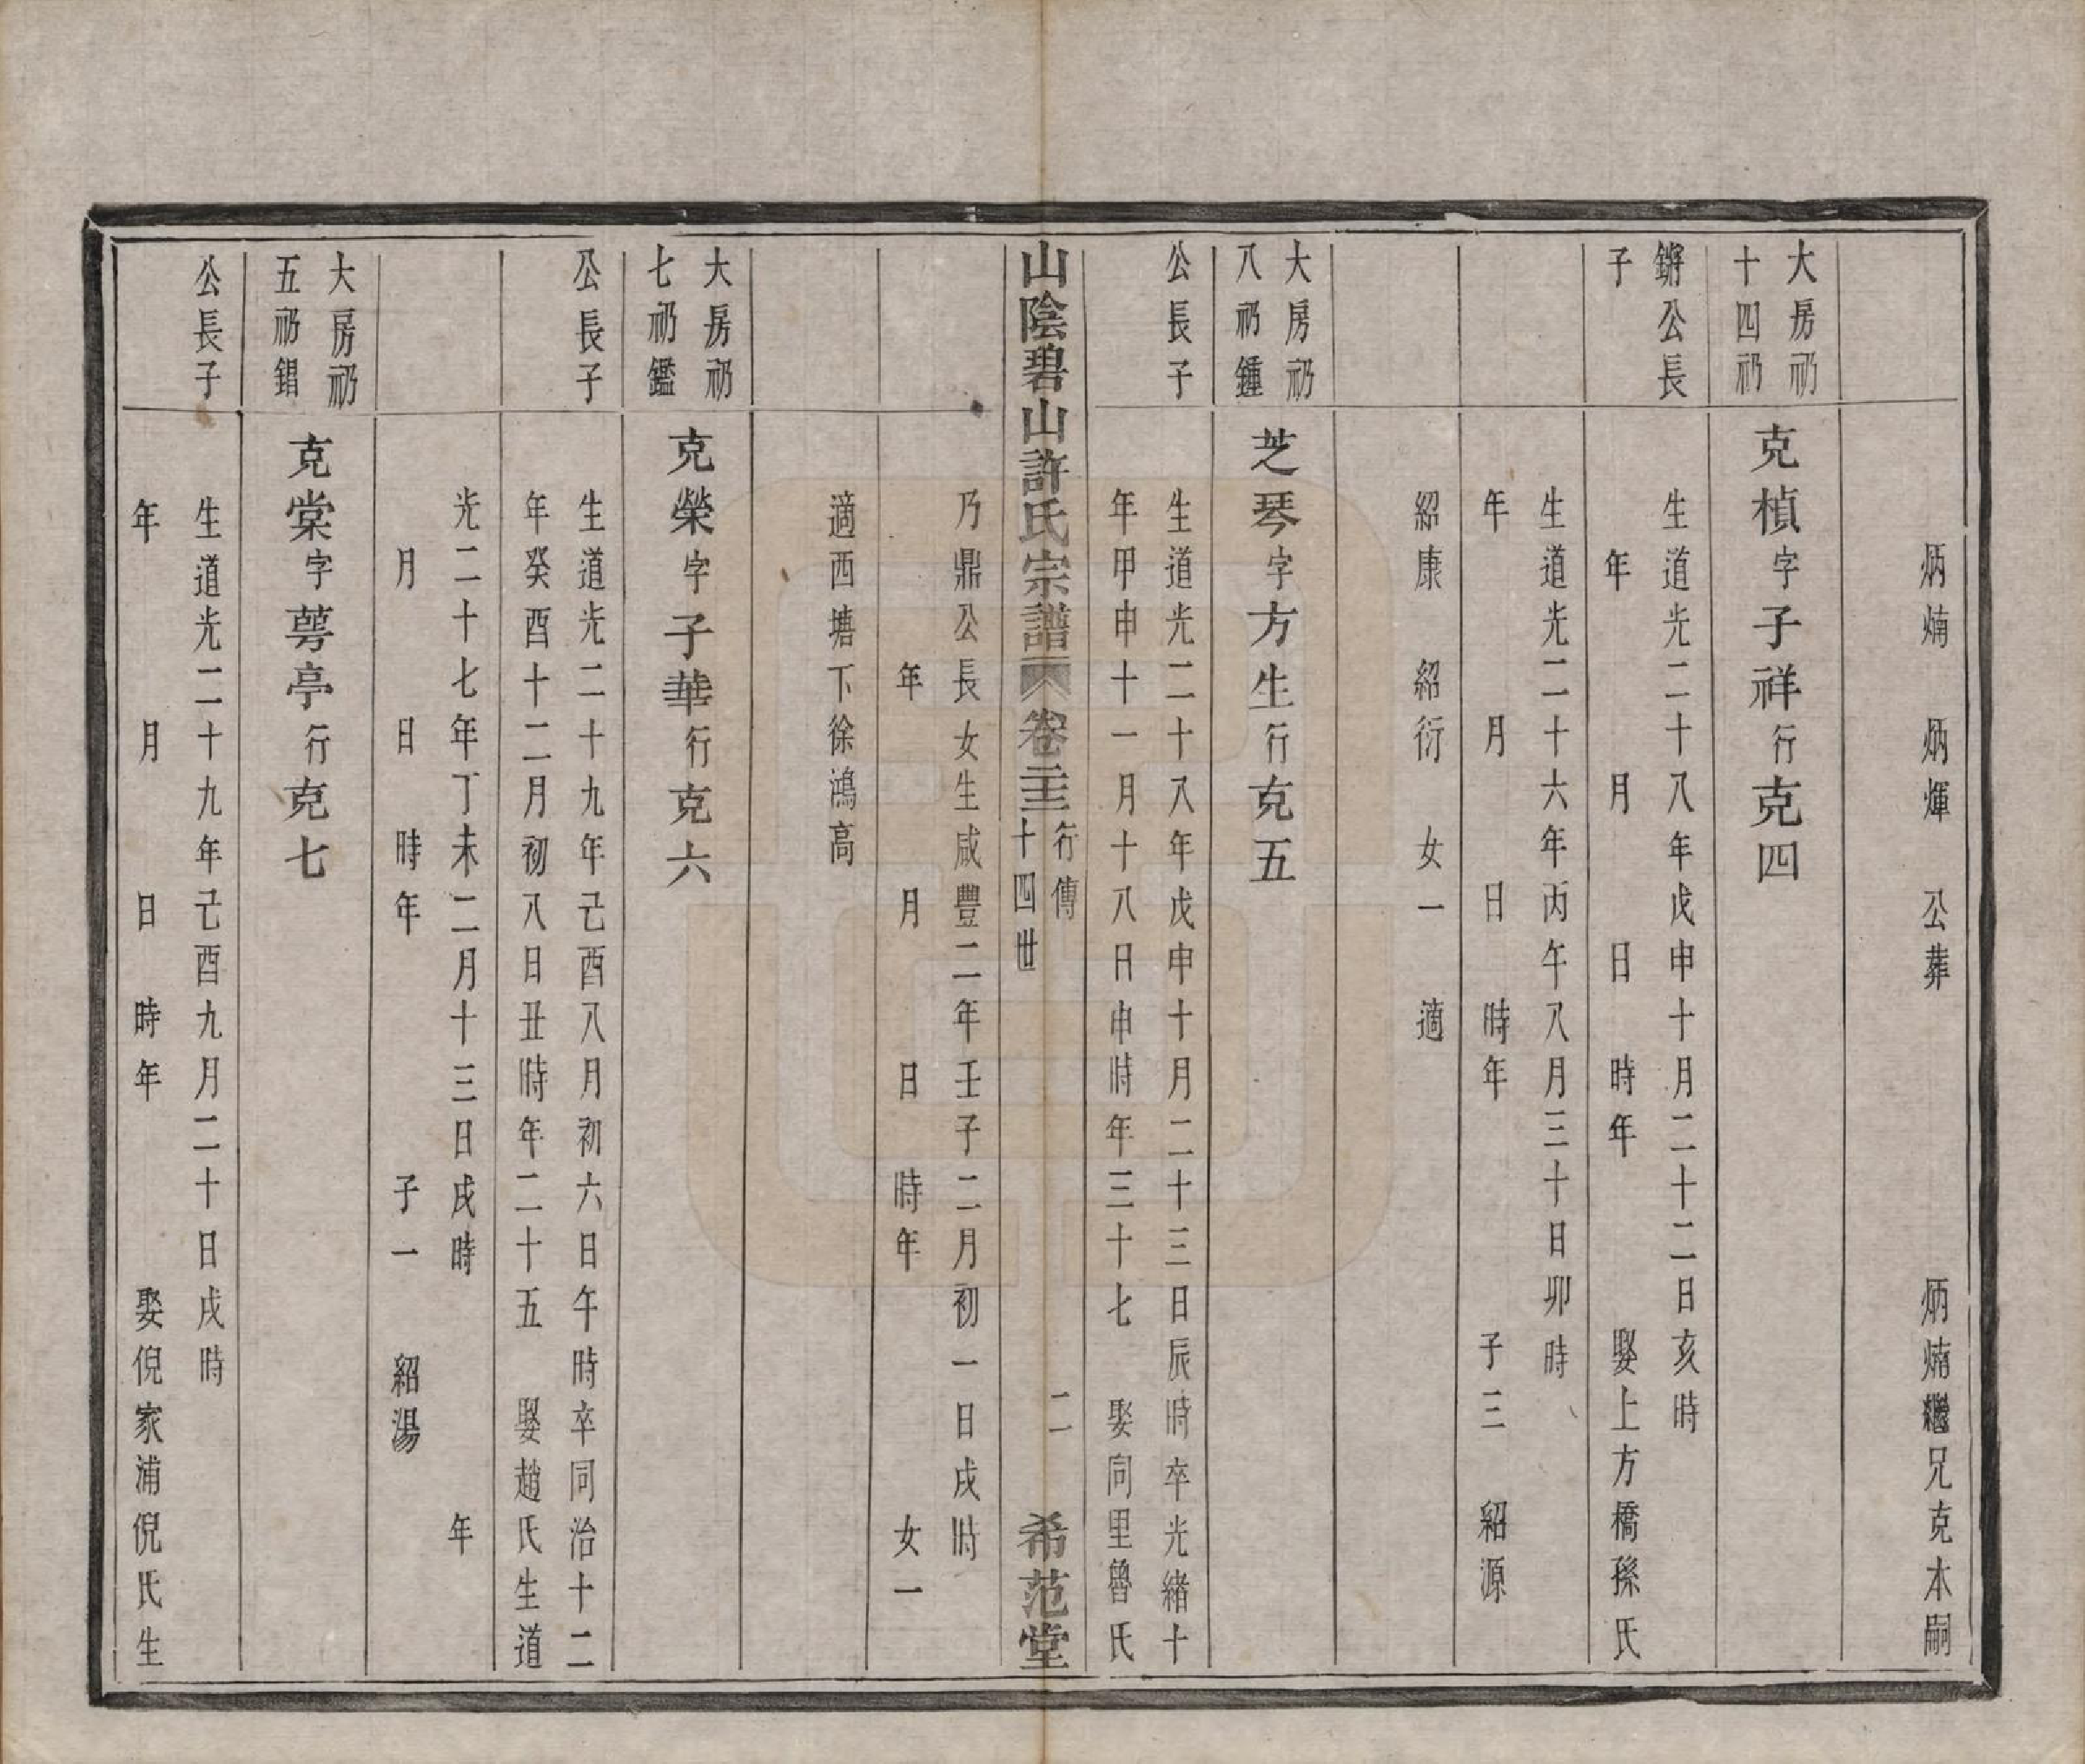 炳煵　炳煇　公葬　炳煵繼兄克本嗣
大房礽
十四礽
克楨字子祥行克四
鏘公長
子
生道光二十八年戊申十月二十二日亥時
年　月　日　時年　娶上方橋孫氏
生道光二十六年丙午八月三十日卯時
年　月　日　時年　子三　紹源
紹康　紹衍　女一　適
大房礽
八礽鍾
芝琴字方生行克五
公長子
生道光二十八年戊申十月二十三日辰時卒光緒十
年甲申十一月十八日申時年三十七　娶同里魯氏
山陰碧山許氏宗譜　卷二十三　行傳　十四世　二　希范堂
乃鼎公長女生咸豐二年壬子二月初一日戌時
年　月　日　時年　女一
適西塘下徐鴻高
大房礽
七礽鑑
克榮字子華行克六
公長子
生道光二十九年己酉八月初六日午時卒同治十二
年癸酉十二月初八日丑時年二十五　娶趙氏生道
光二十七年丁未二月十三日戌時　年
月　日　時年　子一　紹湯
大房礽
五礽錩
克棠字萼亭行克七
公長子
生道光二十九年己酉九月二十日戌時
年　月　日　時年　娶倪家浦倪氏生